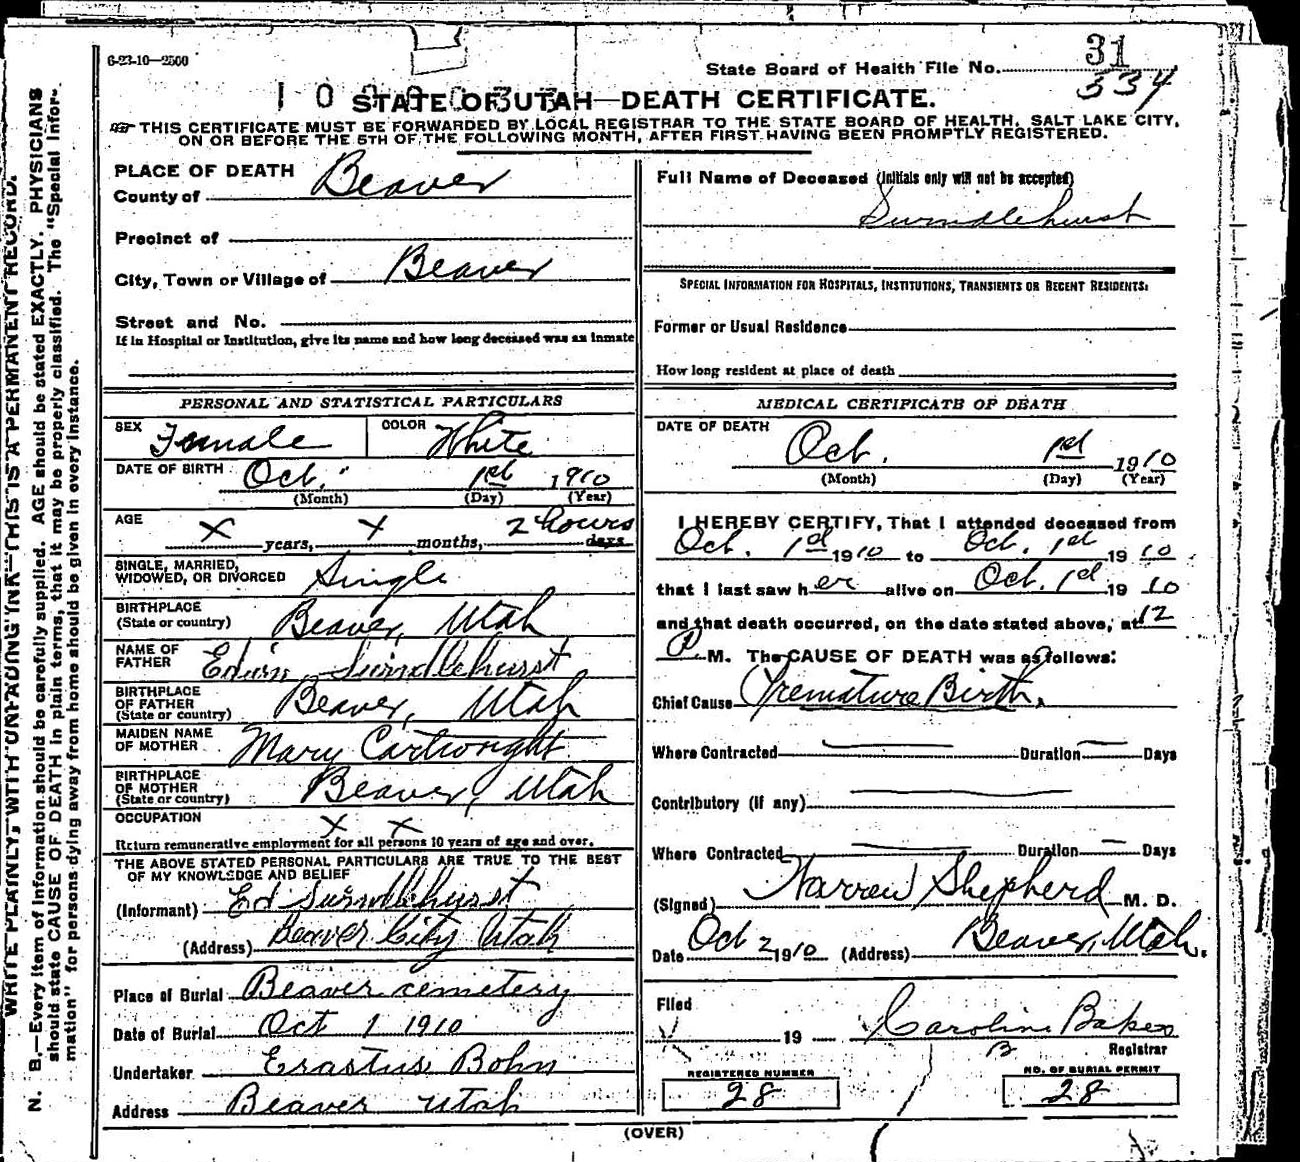 6-23-10—2500
State Board of Health File No. 31
534
STATE OF UTAH—DEATH CERTIFICATE.
THIS CERTIFICATE MUST BE FORWARDED BY LOCAL REGISTRAR TO THE STATE BOARD OF HEALTH, SALT LAKE CITY,
ON OR BEFORE THE 5TH OF THE FOLLOWING MONTH, AFTER FIRST HAVING BEEN PROMPTLY REGISTERED.
PLACE OF DEATH
County of Beaver
Precinct of
City, Town or Village of Beaver
Street and No.
If in Hospital or Institution, give its name and how long deceased was an inmate
Full Name of Deceased (Initials only will not be accepted)
Swindlehurst
SPECIAL INFORMATION FOR HOSPITALS, INSTITUTIONS, TRANSIENTS OR RECENT RESIDENTS:
Former or Usual Residence
How long resident at place of death
PERSONAL AND STATISTICAL PARTICULARS
SEX Female COLOR White
DATE OF BIRTH Oct. 1st 1910
(Month) (Day) (Year)
AGE X years, X months, 2 hours days
SINGLE, MARRIED,
WIDOWED, OR DIVORCED Single
BIRTHPLACE
(State or country) Beaver, Utah
NAME OF
FATHER Edwin Swindlehurst
BIRTHPLACE
OF FATHER
(State or country) Beaver, Utah
MAIDEN NAME
OF MOTHER Mary Cartwright
BIRTHPLACE
OF MOTHER
(State or country) Beaver, Utah
OCCUPATION X X
Return remunerative employment for all persons 10 years of age and over.
THE ABOVE STATED PERSONAL PARTICULARS ARE TRUE TO THE BEST
OF MY KNOWLEDGE AND BELIEF
(Informant) Ed Swindlehurst
(Address) Beaver City Utah
Place of Burial Beaver cemetery
Date of Burial Oct 1 1910
Undertaker Erastus Bohn
Address Beaver Utah
MEDICAL CERTIFICATE OF DEATH
DATE OF DEATH Oct. 1st 1910
(Month) (Day) (Year)
I HEREBY CERTIFY, That I attended deceased from
Oct. 1st 1910 to Oct. 1st 1910
that I last saw her alive on Oct. 1st 1910
and that death occurred, on the date stated above, at 12
P M. The CAUSE OF DEATH was as follows:
Chief Cause Premature Birth.
Where Contracted Duration Days
Contributory (If any)
Where Contracted Duration Days
(Signed) Warren Shepherd M. D.
Date Oct 2 1910 (Address) Beaver, Utah.
Filed
19 Caroline Baker
Registrar
REGISTERED NUMBER
28
NO. OF BURIAL PERMIT
28
(OVER)
WRITE PLAINLY, WITH UNFADING INK—THIS IS A PERMANENT RECORD.
N. B.—Every item of information should be carefully supplied. AGE should be stated EXACTLY. PHYSICIANS
should state CAUSE OF DEATH in plain terms, that it may be properly classified. The "Special Infor-
mation" for persons dying away from home should be given in every instance.